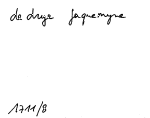 de drye Jaquemyne
1711/8